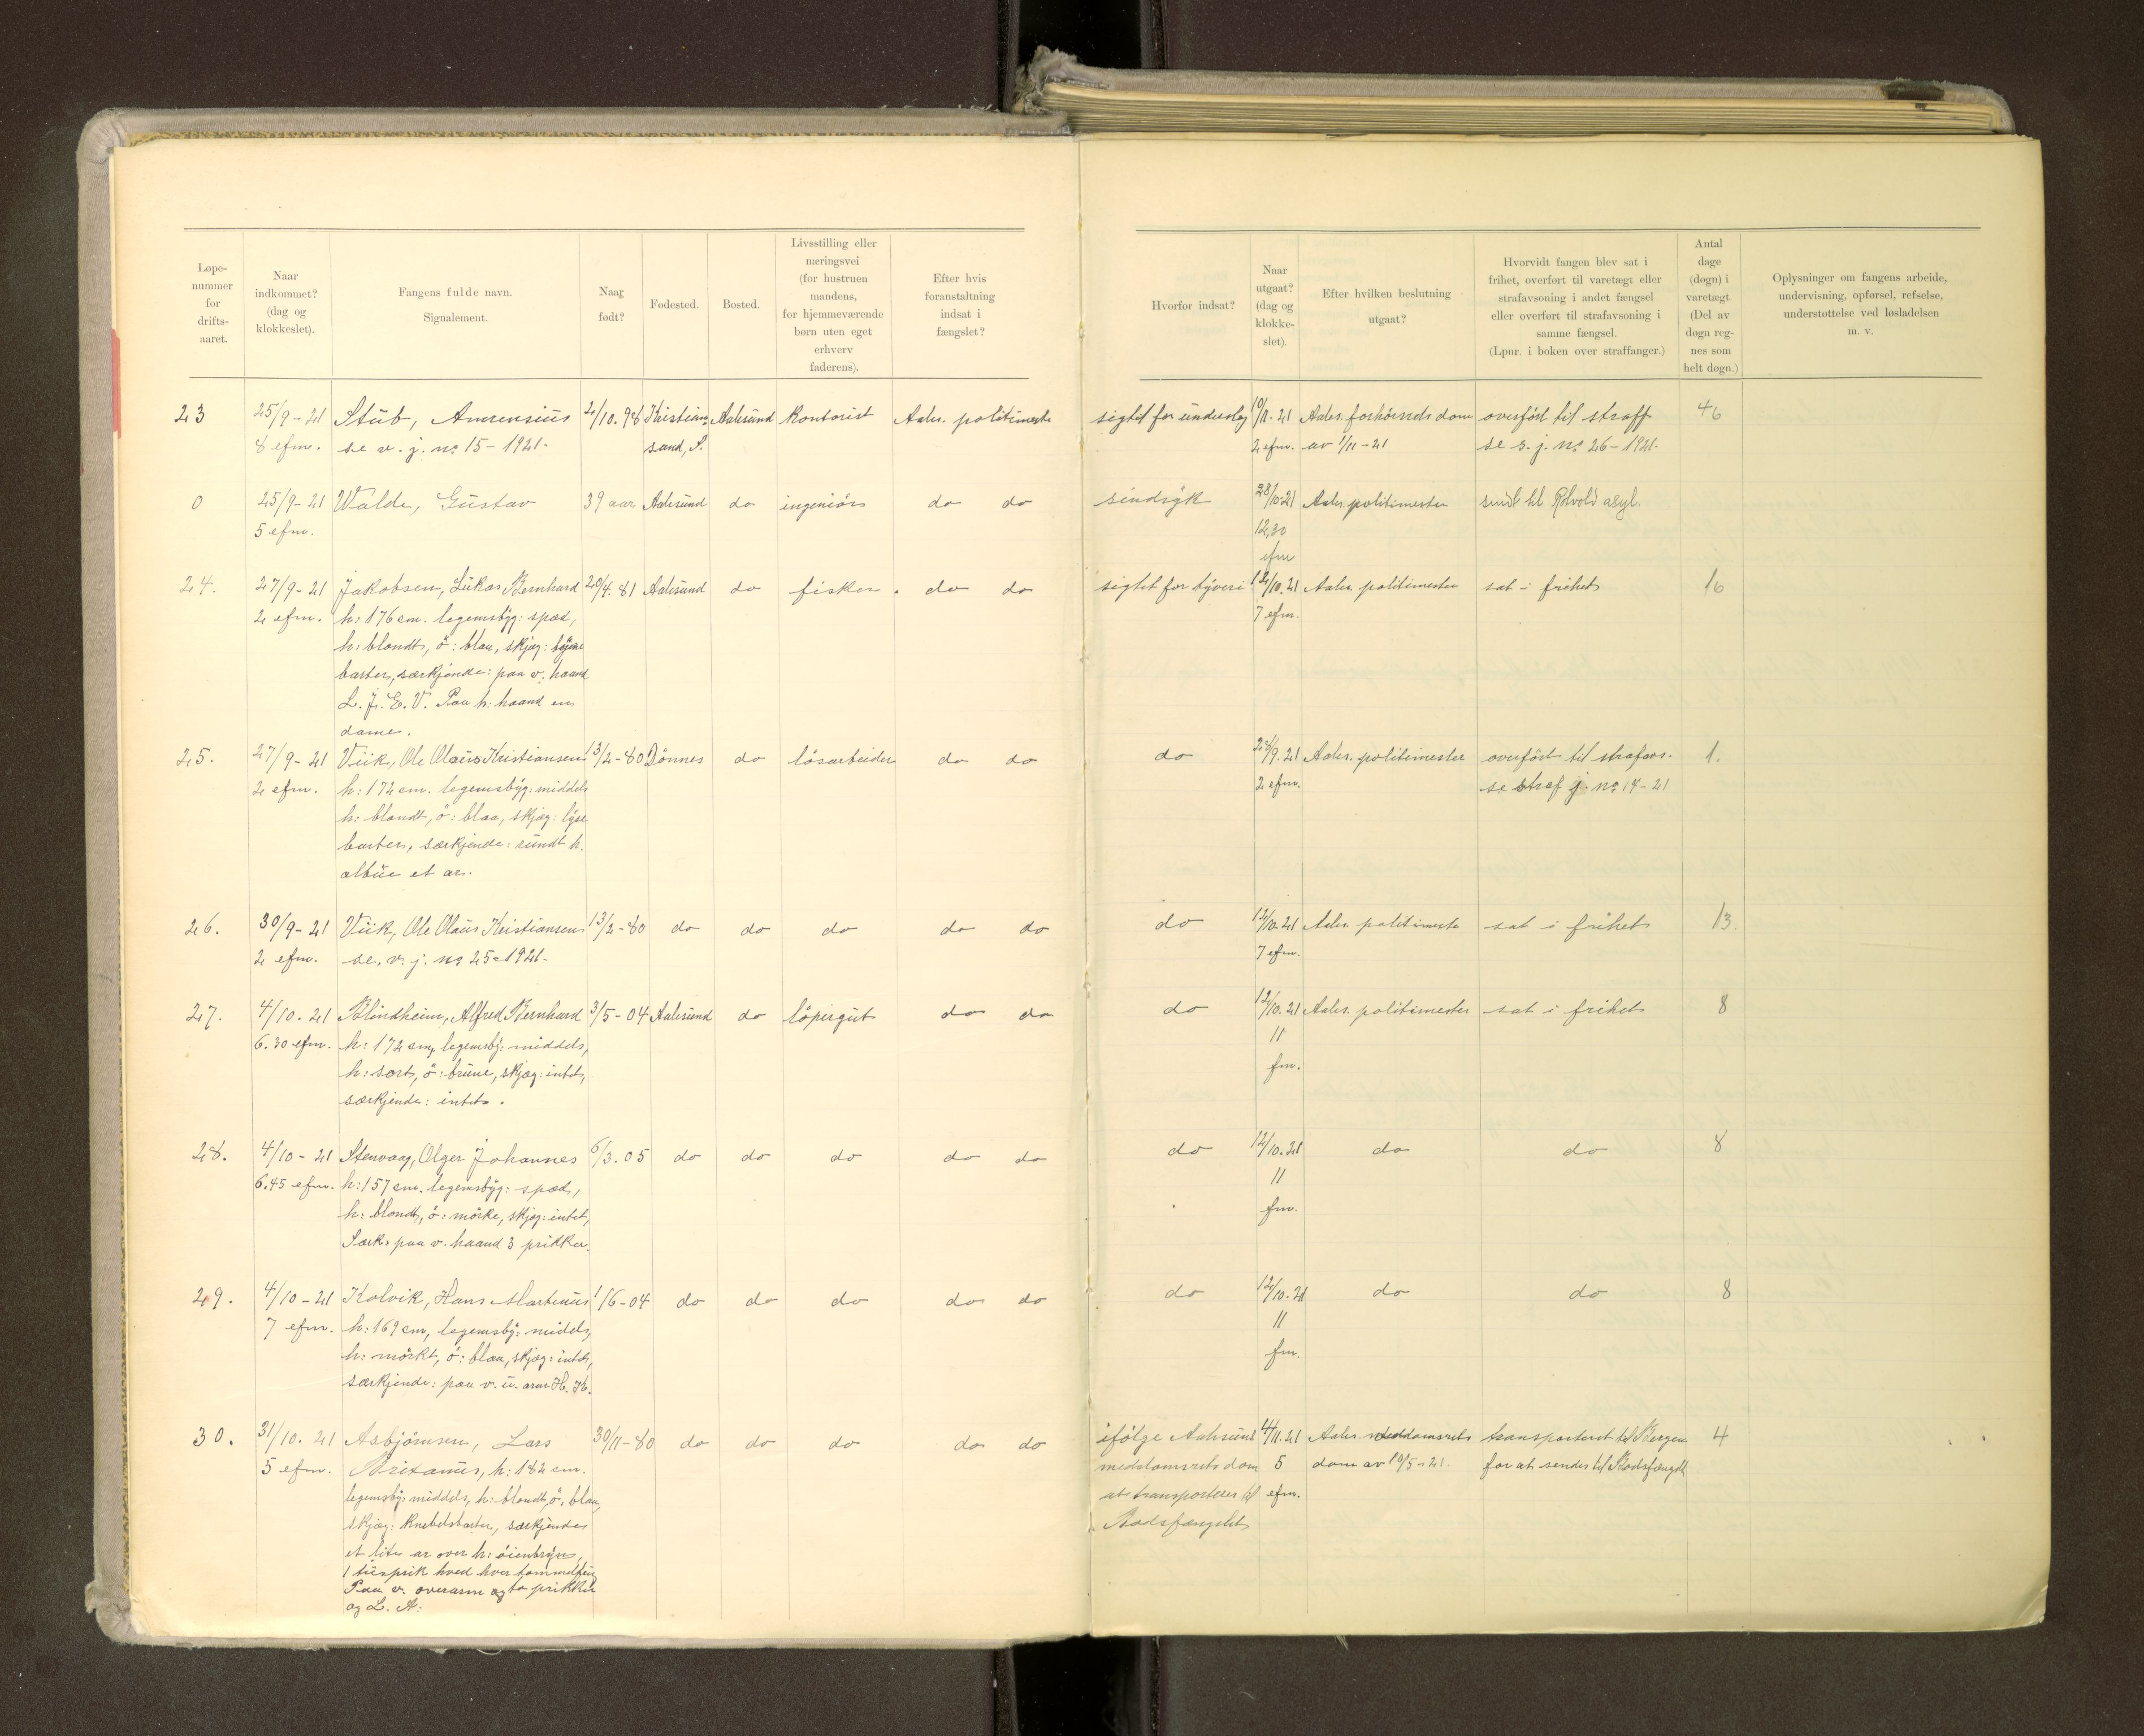 Løpe-
nummer
for
drifts-
aaret.
Naar
indkommet?
(dag og
klokkeslet).
Fangens fulde navn.
Signalement.
Naar
født?
Fødested.
Bosted.
Livsstilling eller
næringsvei
(for hustruen
mandens,
for hjemmeværende
børn uten eget
erhverv
faderens).
Efter hvis
foranstaltning
indsat i
fængslet?
Hvorfor indsat?
Naar
utgaat?
(dag og
klokke-
slet).
Efter hvilken beslutning
utgaat?
Hvorvidt fangen blev sat i
frihet, overført til varetægt eller
strafavsoning i andet fængsel
eller overført til strafavsoning i
samme fængsel.
(Lpnr. i boken over straffanger.)
Antal
dage
(døgn) i
varetægt
(Del av
døgn reg-
nes som
helt døgn.)
Oplysninger om fangens arbeide,
undervisning, opførsel, refselse,
understøttelse ved løsladelsen
m. v.
23 25/9-21 Stub, 2/10.98 Kristian- Aalesund kontorist Aales. politimester sigtet for underslag 10/11.21 Aales. forhørsrets dom overført til straff 46
8 efm. se v. j. no 15-1921. sand, S. 2 efm. av 1/11-21 se s. j. no 26-1921.
0 25/9-21 Walde, Gustav 39 aar Aalesund do ingeniør do do sindsyk 28/10-21 Aales. politimester sendt til asyl.
5 efm. 12,30
efm
24. 27/9-21 Jakobsen, Lukas Bernhard 20/4.81 Aalesund do fisker. do do sigtet for tyveri 12/10.21 Aales. politimester sat i frihet 16
2 efm. h: 176 cm. legemsbyg: spæd, 7 efm.
h: blondt, ö: blaa, skjæg: lyse
barter, særkjende: paa v. haand
L. J. E. V. Paa h: haand en
dame.
25. 27/9-21 Viik, Ole Olaus Kristiansen 13/2-80 Dönnes do løsarbeider do do do 28/9.21 Aales. politimester overført til strafavs. 1.
2 efm. h: 172 cm. legemsbyg: middels 2 efm. se straf j. no 17-21
h: blondt, ö: blaa, skjæg: lyse
barter, særkjende: rundt h.
albue et ar.
26. 30/9-21 Viik, Ole Olaus Kristiansen 13/2-80 do do do do do do 12/10.21 Aales. politimester sat i frihet 13.
2 efm. se. v. j. no 25-1921. 7 efm.
27. 4/10.21 Blindheim, Alfred Bernhard 3/5-04 Aalesund do løpergut do do do 12/10.21 Aales. politimester sat i frihet 8
6.30 efm. h: 172 cm, legemsby: middels, 11
h: sort, ö: brune, skjæg: intet, fm.
særkjende: intet.
28. 4/10-21 Stenvaag, Olger Johannes 6/3.05 do do do do do do 12/10.21 do do 8
6.45 efm. h: 157 cm. legemsbyg: spæd, 11
h: blondt, ö: mörke, skjæg: intet, fm.
Særk: paa v. haand 3 prikker.
29. 4/10-21 Kolvik, Hans Martinus 1/6-04 do do do do do do 12/10.21 do do 8
7 efm. h: 169 cm, legemsby: middels, 11
h: mörkt, ö: blaa, skjæg: intet, fm.
særkjende: paa v. u. arm H. K.
30. 31/10.21 Asbjörnsen, Lars 30/11-80 do do do do do ifölge Aalesund 4/11.21 Aales. meddomsrets transporteret til Bergen 4
5 efm. Britanus, h: 182 cm. meddomsrets dom 5 dom av 10/5-21. for at sendes til Bodsfængslet
legemsby: middels, h: blondt, ö, blaa, at transporteres til efm.
skjæg: knebelsbarter, særkjende: Bodsfængslet
et lite ar over h: öienbryn,
1 tusprik hved hver tommelfing
Paa v. overarm og to prikker
og L. A: